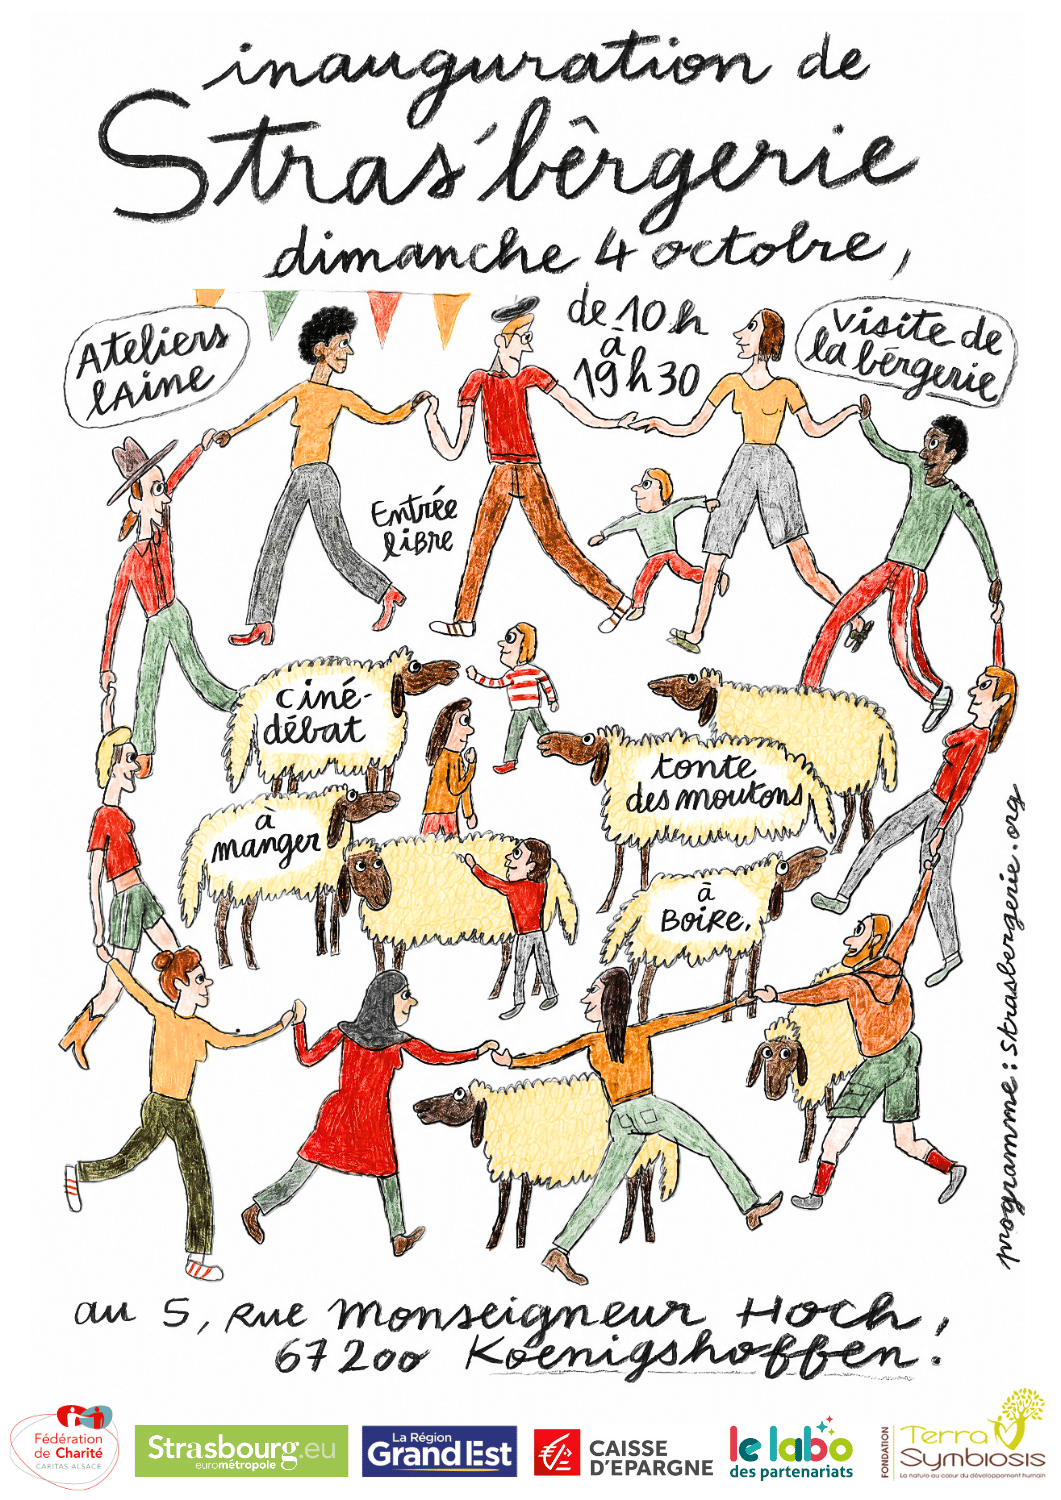 inauguration de
Stras'bêrgerie
dimanche 4 octobre,
de 10h
à
19h30
Ateliers
lAine
visite de
la bérgerie
Entrée
liBre
ciné-
débat
tonte
des moutons
à
manger
à
BoiRe.
programme : strasbergerie.org
au 5, Rue Monseigneur Hoch,
67200 Koenigshoffen.
Fédération
de Charité
CARITAS ALSACE
Strasbourg.eu
eurométropole
La Région
GrandEst
CAISSE
D'EPARGNE
le labo
des partenariats
FONDATION
Terra
Symbiosis
La nature au cœur du développement humain